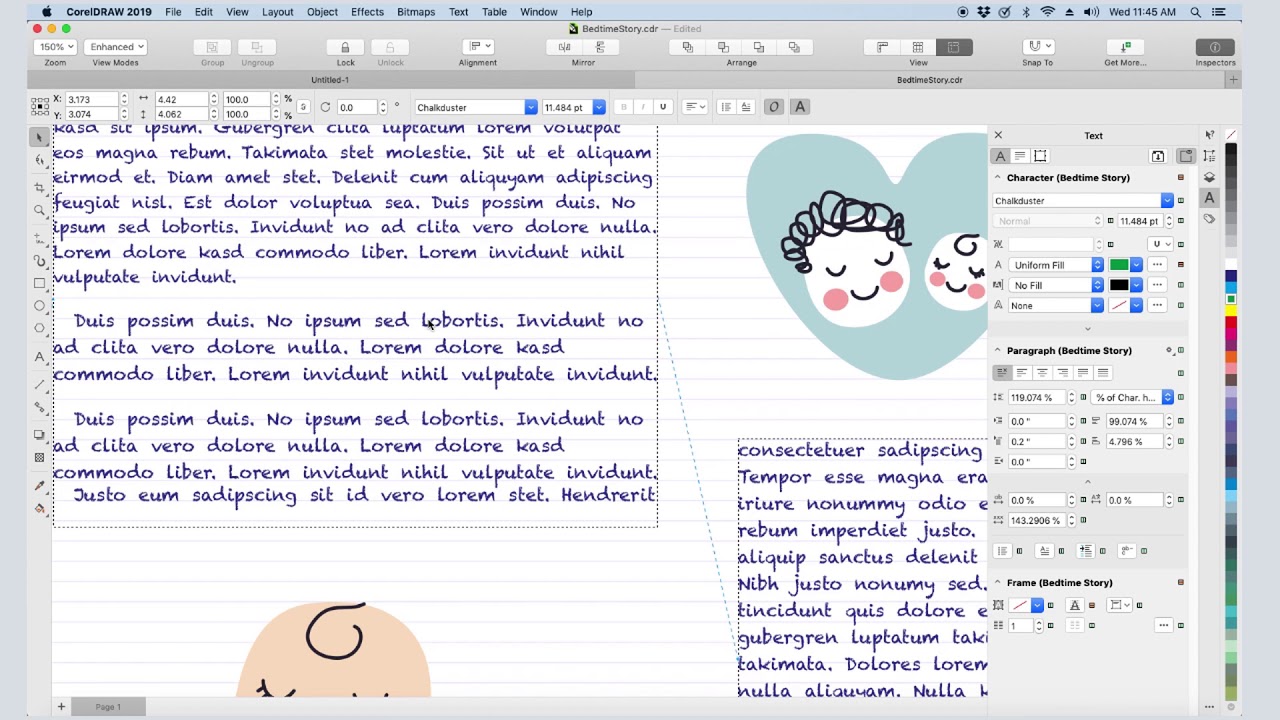 CorelDRAW 2019 File Edit View Layout Object Effects Bitmaps Text Table Window Help Wed 11:45 AM
BedtimeStory.cdr — Edited
150% Enhanced
Zoom View Modes Group Ungroup Lock Unlock Alignment Mirror Arrange View Snap To Get More... Inspectors
Untitled-1 BedtimeStory.cdr
X: 3.173 4.42 100.0 % 0.0 ° Chalkduster 11.484 pt B I U
Y: 3.074 4.062 100.0 %
kasd sit ipsum. Gubergren clita luptatum lorem volutpat
eos magna rebum. Takimata stet molestie. Sit ut et aliquam
eirmod et. Diam amet stet. Delenit cum aliquyam adipiscing
feugiat nisl. Est dolor voluptua sea. Duis possim duis. No
ipsum sed lobortis. Invidunt no ad clita vero dolore nulla.
Lorem dolore kasd commodo liber. Lorem invidunt nihil
vulputate invidunt.
Duis possim duis. No ipsum sed lobortis. Invidunt no
ad clita vero dolore nulla. Lorem dolore kasd
commodo liber. Lorem invidunt nihil vulputate invidunt.
Duis possim duis. No ipsum sed lobortis. Invidunt no
ad clita vero dolore nulla. Lorem dolore kasd
commodo liber. Lorem invidunt nihil vulputate invidunt.
Justo eum sadipscing sit id vero lorem stet. Hendrerit
consectetuer sadipscing
Tempor esse magna era
iriure nonummy odio e
rebum imperdiet justo.
aliquip sanctus delenit
Nibh justo nonumy sed.
tincidunt quis dolore e
gubergren luptatum taki
takimata. Dolores lorem
nulla aliquyam. Nulla
Text
Character (Bedtime Story)
Chalkduster
Normal 11.484 pt
U
Uniform Fill
No Fill
None
Paragraph (Bedtime Story)
119.074 % % of Char. h...
0.0 " 99.074 %
0.2 " 4.796 %
0.0 "
0.0 % 0.0 %
143.2906 %
Frame (Bedtime Story)
1
Page 1